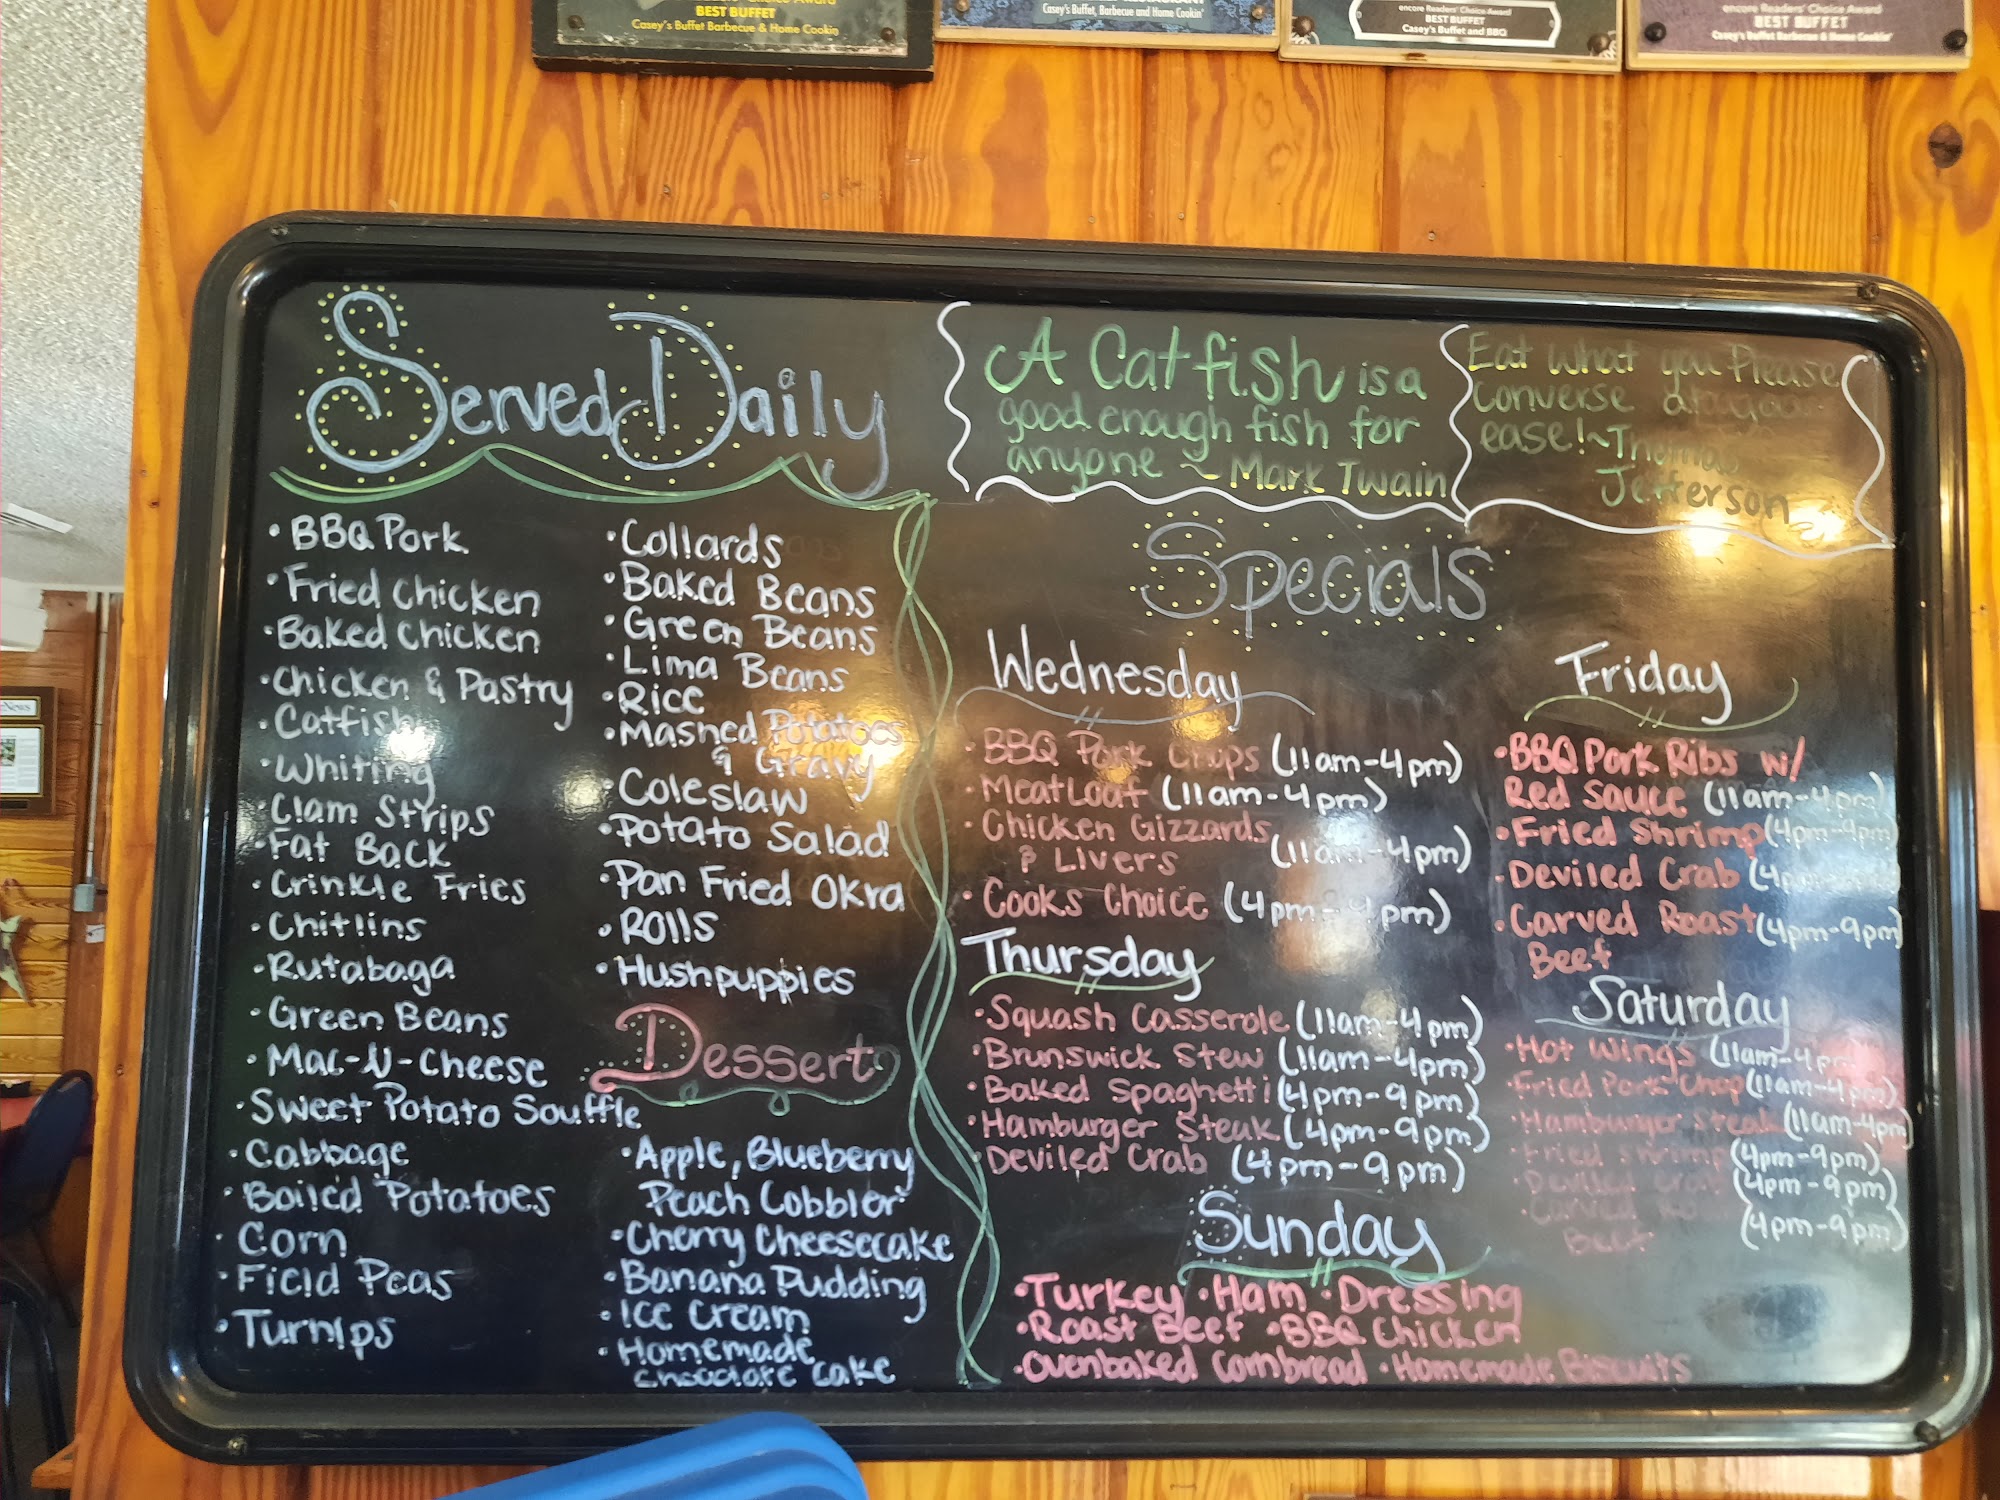 Readers' Choice Award
BEST BUFFET
Casey's Buffet Barbecue & Home Cookin
Casey's Buffet, Barbecue and Home Cookin'
encore Readers' Choice Award
BEST BUFFET
Casey's Buffet and BBQ
encore Readers' Choice Award
BEST BUFFET
Casey's Buffet Barbecue & Home Cookin'
Served Daily
• BBQ Pork
• Fried Chicken
• Baked Chicken
• Chicken & Pastry
• Catfish
• Whiting
• Clam Strips
• Fat Back
• Crinkle Fries
• Chitlins
• Rutabaga
• Green Beans
• Mac-N-Cheese
• Sweet Potato Souffle
• Cabbage
• Boiled Potatoes
• Corn
• Field Peas
• Turnips
• Collards
• Baked Beans
• Green Beans
• Lima Beans
• Rice
• Mashed Potatoes
& Gravy
• Coleslaw
• Potato Salad
• Pan Fried Okra
• Rolls
• Hushpuppies
Dessert
• Apple, Blueberry
Peach Cobbler
• Cherry Cheesecake
• Banana Pudding
• Ice Cream
• Homemade
Chocolate Cake
A Catfish is a
good enough fish for
anyone ~ Mark Twain
Eat What you Please
Converse
ease! ~ Thomas
Jefferson
Specials
Wednesday
• BBQ Pork Chops (11am-4pm)
• Meatloaf (11am-4pm)
• Chicken Gizzards
& Livers (11am-4pm)
• Cooks Choice (4pm-9pm)
Thursday
• Squash Casserole (11am-4pm)
• Brunswick Stew (11am-4pm)
• Baked Spaghetti (4pm-9pm)
• Hamburger Steak (4pm-9pm)
• Deviled Crab (4pm-9pm)
Friday
• BBQ Pork Ribs w/
Red Sauce (11am-4pm)
• Fried Shrimp (4pm-9pm)
• Deviled Crab (4pm
• Carved Roast (4pm-9pm)
Beef
Saturday
• Hot Wings (11am-4pm)
• Fried Pork Chop (11am-4pm)
• Hamburger Steak (11am-4pm)
• Fried Shrimp (4pm-9pm)
• Deviled Crab (4pm-9pm)
• Carved Roast (4pm-9pm)
Beef
Sunday
• Turkey • Ham • Dressing
• Roast Beef • BBQ Chicken
• Ovenbaked Cornbread • Homemade Biscuits